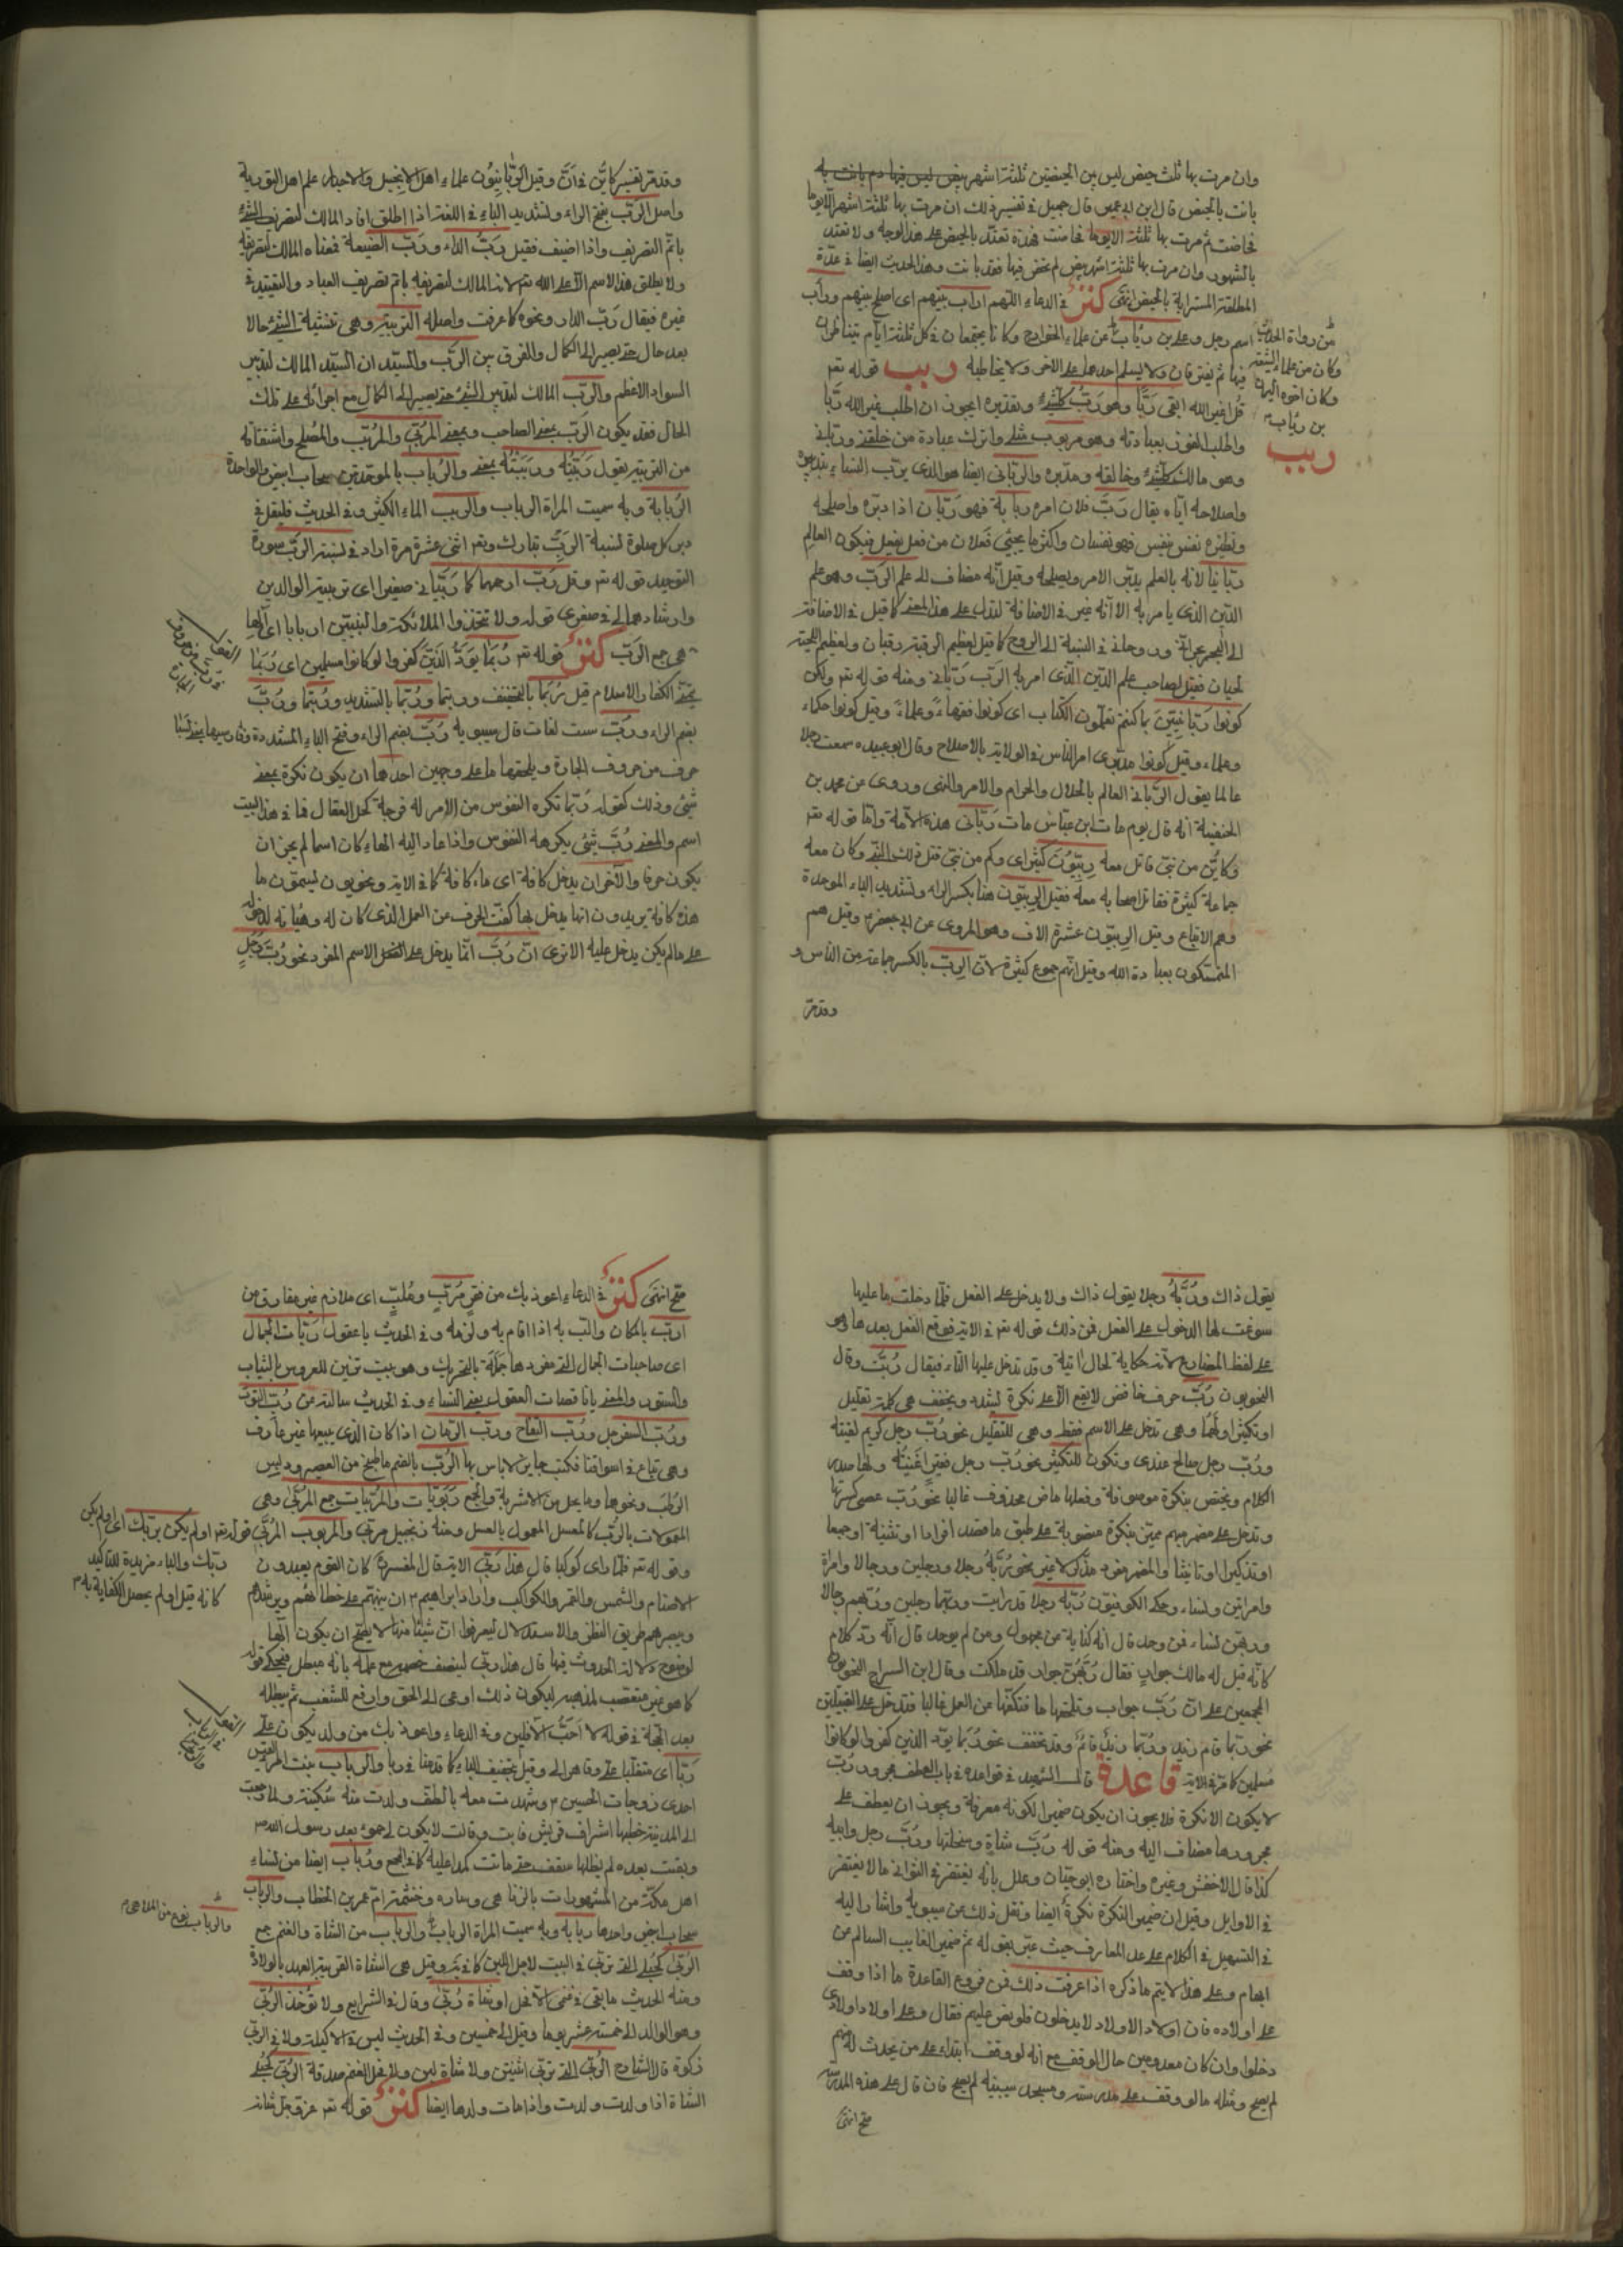 وان مرت بها ثلث حيض ليس بين الحيضتين ثلثة اشهر بيض ليس فيها دم بانت به
بانت بالحيض قال ابن ابي عمير قال جميل في تفسير ذلك ان مرت بها ثلثة اشهر الا يوما
فحاضت ثم مرت بها ثلثة الا يوما فحاضت فهذه تعتد بالحيض على هذا الوجه ولا تعتد
بالشهور وان مرت بها ثلثة اشهر بيض لم تحض فيها فقد بانت وهذا الحديث ايضا في عدة
المطلقة المسترابة بالحيض انتهى كنز في الدعاء اللهم اراب بينهم اى اصلح بينهم وراب
اسم رجل وعلى بن رئاب من علماء الخوارج وكانا يجتمعان في كل ثلثة ايام يتناظران
فيها ثم يفترقان ولا يسلم احدهما على الاخر ولا يخاطبه ربب قوله تعم
من رواة الحديث
وكان من علماء الشيعة
وكان اخوه اليمان
بن رئاب
ربب
قل اغير الله ابغى ربا وهو رب كلشئ وتقديره ايجوز ان اطلب غير الله ربا
واطلب الفوز بعبادته وهو مربوب مثلى واترك عبادة من خلقنى وربانى
وهو مالك كلشئ وخالقه ومدبره والربانى ايضا هو الذى يرب الشئ بتدبيره
واصلاحه اياه يقال رب فلان امره ربابة فهو ربان اذا دبره واصلحه
ونظيره نعس ينعس فهو نعسان واكثر ما يجئ فعلان من فعل يفعل فيكون العالم
ربانيا لانه بالعلم يدبر الامر ويصلحه وقيل انه مضاف الى علم الرب وهو علم
الدين الذى يامر به الا انه غير في الاضافة ليدل على هذا المعنى كما قيل في الاضافة
الى البحر بحرانى وروحانى في النسبة الى الروح كما قيل لعظيم الرقبة رقبان ولعظيم اللحية
لحيان فقيل لصاحب علم الدين الذى امر به الرب ربانى ومنه قوله تعم ولكن
كونوا ربانيين بما كنتم تعلمون الكتاب اى كونوا فقهاء وعلماء وقيل كونوا حكماء
وعلماء وقيل كونوا مدبرى امر الناس في الولاية بالاصلاح وقال ابو عبيده سمعت رجلا
عالما يقول الربانى العالم بالحلال والحرام والامر والنهى وروى عن محمد بن
الحنفية انه قال يوم مات ابن عباس مات ربانى هذه الامة واما قوله تعم
وكاين من نبى قاتل معه ربيون كثير اى وكم من نبى قتل ذلك النبى وكان معه
جماعة كثيرة فقاتل اصحابه معه فقيل الربيون هنا بكسر الراء وتشديد الباء الموحدة
وهم الاتباع وقيل الربيون عشرة الاف وهو المروى عن ابى جعفر وقيل هم
المتمسكون بعبادة الله وقيل انهم جموع كثيرة لان الرب بالكسر جماعة من الناس و
وقد مر
وقد مر تفسير كاين في ان وقيل الربانيون علماء اهل الانجيل والاحبار علماء اهل التورية
واصل الرب بفتح الراء وتشديد الباء في اللغة اذا اطلق افاد المالك لتصريف الشئ
باتم التصريف واذا اضيف فقيل رب الدار ورب الضيعة فمعناه المالك لتصريفه
ولا يطلق هذا الاسم الا على الله تعم لانه المالك لتصريفه باتم تصريف العباد والتقييد في
غيره فيقال رب الدار ونحوه كما عرفت واصله التربية وهى تنشئة الشئ حالا
بعد حال حتى يصير الى الكمال والفرق بين الرب والسيد ان السيد المالك لتدبير
السواد الاعظم والرب المالك لتدبير الشئ حتى يصير الى الكمال مع اجرائه على تلك
الحال فقد يكون الرب بمعنى الصاحب وبمعنى المربى والمرتب والمصلح واشتقاقه
من التربية يقول ربيته وربيته بمعنى والرباب بالموحدتين سحاب ابيض والواحدة
الربابة وبه سميت المراة الرباب والربب الماء الكثير وفى الحديث فليقل في
دبر كل صلوة لنسبة الرب تبارك وتعم اثنى عشرة مرة اراد في نسبة الرب سورة
التوحيد قوله تعم وقل رب ارحمهما كما ربيانى صغيرا اى تربية الوالدين
وارشادهما لى في صغرى قوله ولا تتخذوا الملائكة والنبيين اربابا اى آلهة
هى جمع الرب كنز قوله تعم ربما يود الذين كفروا لو كانوا مسلمين اى ربما
يتمنى الكفار الاسلام قيل ربما بالتخفيف وربتما وربما بالتشديد وربتما ورب
بضم الراء ورب ست لغات قال سيبويه رب بضم الراء وفتح الباء المشددة
حرف من حروف الجارة ويلحقها ما على وجهين احدهما ان يكون نكرة بمعنى
شئ وذلك كقوله ربما تكره النفوس من الامر له فرجة كحل العقال فما في هذا البيت
اسم والمعنى رب شئ يكرهه النفوس واذا عاد اليه الهاء كان اسما لم يجز ان
يكون حرفا والآخر ان يدخل كافة اى ماء كافة كما في الاية ونحويون ليسمون ما
هذه كافة يريدون انها يدخل لها كفت الحرف عن العمل الذى كان له وهياته لدخوله
على ما لم يكن يدخل عليه الا ترى ان رب انما يدخل على الاسم المفرد نحو رب رجل
يقول ذاك وربه رجلا يقول ذاك ولا يدخل على الفعل فلما دخلت ما عليها
سوغت لها الدخول على الفعل فمن ذلك قوله تعم في الاية فوقع الفعل بعدها وهو
على لفظ المضارع لانه حكاية لحال اتية وقد تدخل عليها التاء فيقال ربت وقال
النحويون رب حرف خافض لا يقع الا على نكرة يشدد ويخفف هى كلمة تقليل
او تكثير او لهما وهى تدخل على الاسم فقط وهى للتقليل نحو رب رجل كريم لقيته
ورب رجل صالح عندى وتكون للتكثير نحو رب رجل فقير اغنيته ولها صدر
الكلام ويختص بنكرة موصوفة وفعلها ماض محذوف غالبا نحو رب عصى كسرتها
وتدخل على مضمر مبهم مميز بنكرة منصوبة على طبق ما قصد افرادا او تثنية او جمعا
او تذكيرا او تانيثا والمضمر مفرد مذكر لا غير نحو ربه رجلا ورجلين ورجالا وامراة
وامراتين ونساء وحكى الكوفيون ربه رجلا قد رايت وربهما رجلين وربهم رجالا
وربهن نساء فمن وحد قال انه كناية عن مجهول ومن لم يوحد قال انه رد كلام
كانه قيل له مالك جوار فقال ربهن جوار قد ملكت وقال ابن السراج النحويون
كالمجمعين على ان رب جواب وتلحقها ما فتكفها عن العمل غالبا فتدخل على القبيلتين
نحو ربما قام زيد وربما زيد قائم وقد تخفف نحو ربما يود الذين كفروا لو كانوا
مسلمين كما مر في الاية قاعدة قال الشهيد في قواعده في باب العطف مجرور رب
لا يكون الا نكرة فلا يجوز ان يكون ضميرا لكونه معرفة ويجوز ان يعطف على
مجرورها مضاف اليه ومنه قوله رب شاة وسخلتها ورب رجل وابيه
كذا قال الاخفش وغيره واختاره ابو حيان وعلل بانه يغتفر في الثوانى ما لا يغتفر
في الاوايل وقيل ان ضمير النكرة نكرة ايضا ونقل ذلك عن سيبويه واشار اليه
في التسهيل في الكلام على عد المعارف حيث عبر بقوله ثم ضمير الغايب السالم عن
ابهام وعلى هذا لا يتم ما ذكره اذا عرفت ذلك فمن فروع القاعدة ما اذا وقف
على اولاده فان اولاد الاولاد لا يدخلون فلو نص عليهم فقال وعلى اولاد اولادى
دخلوا وان كان معدومين حال الوقف مع انه لو وقف ابتداء على من يحدث له منهم
لم يصح ومثله ما لو وقف على مدرسة ومسجد سيبنيه لم يصح فان قال على هذه المدرسة
صح انتهى
صح انتهى كنز في الدعاء اعوذ بك من فقر مرب وملب اى ملازم غير مفارق من
ارب بالمكان والب به اذا اقام به ولزمه وفى الحديث يا عقول ربات الحجال
اى صاحبات الحجال التى مفردها حجلة بالتحريك وهو بيت تزين للعروس بالثياب
والستور والمعنى يا ناقصات العقول يعنى النساء وفى الحديث سالته عن رب التوت
ورب السفرجل ورب التفاح ورب الرمان اذا كان الذى يبيعها غير عارف
وهى تباع في اسواقنا فكتب جايز لا باس بها الرب بالضم ما طبخ من العصير ودبس
الرطب ونحوها وما يحل من الاشربة والجمع ربوبات والمربيات جمع المربى وهى
المعمولات بالرب كالمعسل المعمول بالعسل ومنه زنجبيل مربى والمربوب المربى قوله تعم اولم يكن بربك اى اولم يكف
ربك والباء مزيدة للتاكيد
كانه قيل اولم يحصل الكفاية به
وقوله تعم فلما راى كوكبا قال هذا ربى الاية قال المفسرون كان القوم يعبدون
الاصنام والشمس والقمر والكواكب واراد ابراهيم ان ينبههم على خطائهم ويرشدهم
ويبصرهم طريق النظر والاستدلال ليعرفوا ان شيئا منها لا يصح ان يكون آلها
لوضوح دلالة الحدوث فيها قال هذا ربى لينصف خصمه مع علمه بانه مبطل فيحكى قوله
كما هو غير متعصب لمذهبه ليكون ذلك ادعى الى الحق وادفع للشغب ثم يبطله
بعد الحجة في قوله لا احب الآفلين وفى الدعاء واعوذ بك من ولد يكون على
ربا اى متغلبا على وقاهرا لى وقيل بتخفيف الباء كما قدمنا في ربا والرباب بنت امرئ القيس
احدى زوجات الحسين وشهدت معه بالطف ولدت منه سكينة ولما رجعت
الى المدينة خطبها اشراف قريش فابت وقالت لا يكون لى حمو بعد رسول الله
وبقيت بعده لم يظلها سقف حتى ماتت كمدا عليه كما في المجمع ورباب ايضا من نساء
اهل مكة من المشهورات بالزنا هى وساره وحنتمة ام عمر بن الخطاب والرباب
والرباب نوع من الملاهى
سحاب ابيض واحدها ربابه وبه سميت المراة الرباب والرباب من الشاة والغنم جمع
الربى كحبلى التى تربى في البيت لاجل اللبن كما في وقيل هى الشاة القريبة العهد بالولادة
ومنه الحديث ما بقى في غنمى الا فحل او شاة ربى وقال في الشرايع ولا تؤخذ الربى
وهو الوالد الى خمسة عشر يوما وقيل الى خمسين وفى الحديث ليس في الاكيلة ولا في الربى
زكوة قال الشارح الربى التى تربى اثنين ولا شاة لبن ولا فحل الغنم صدقة الربى كحبلى
الشاة اذا ولدت ولدت واذا مات ولدها ايضا كنز قوله تعم عز وجل شانه